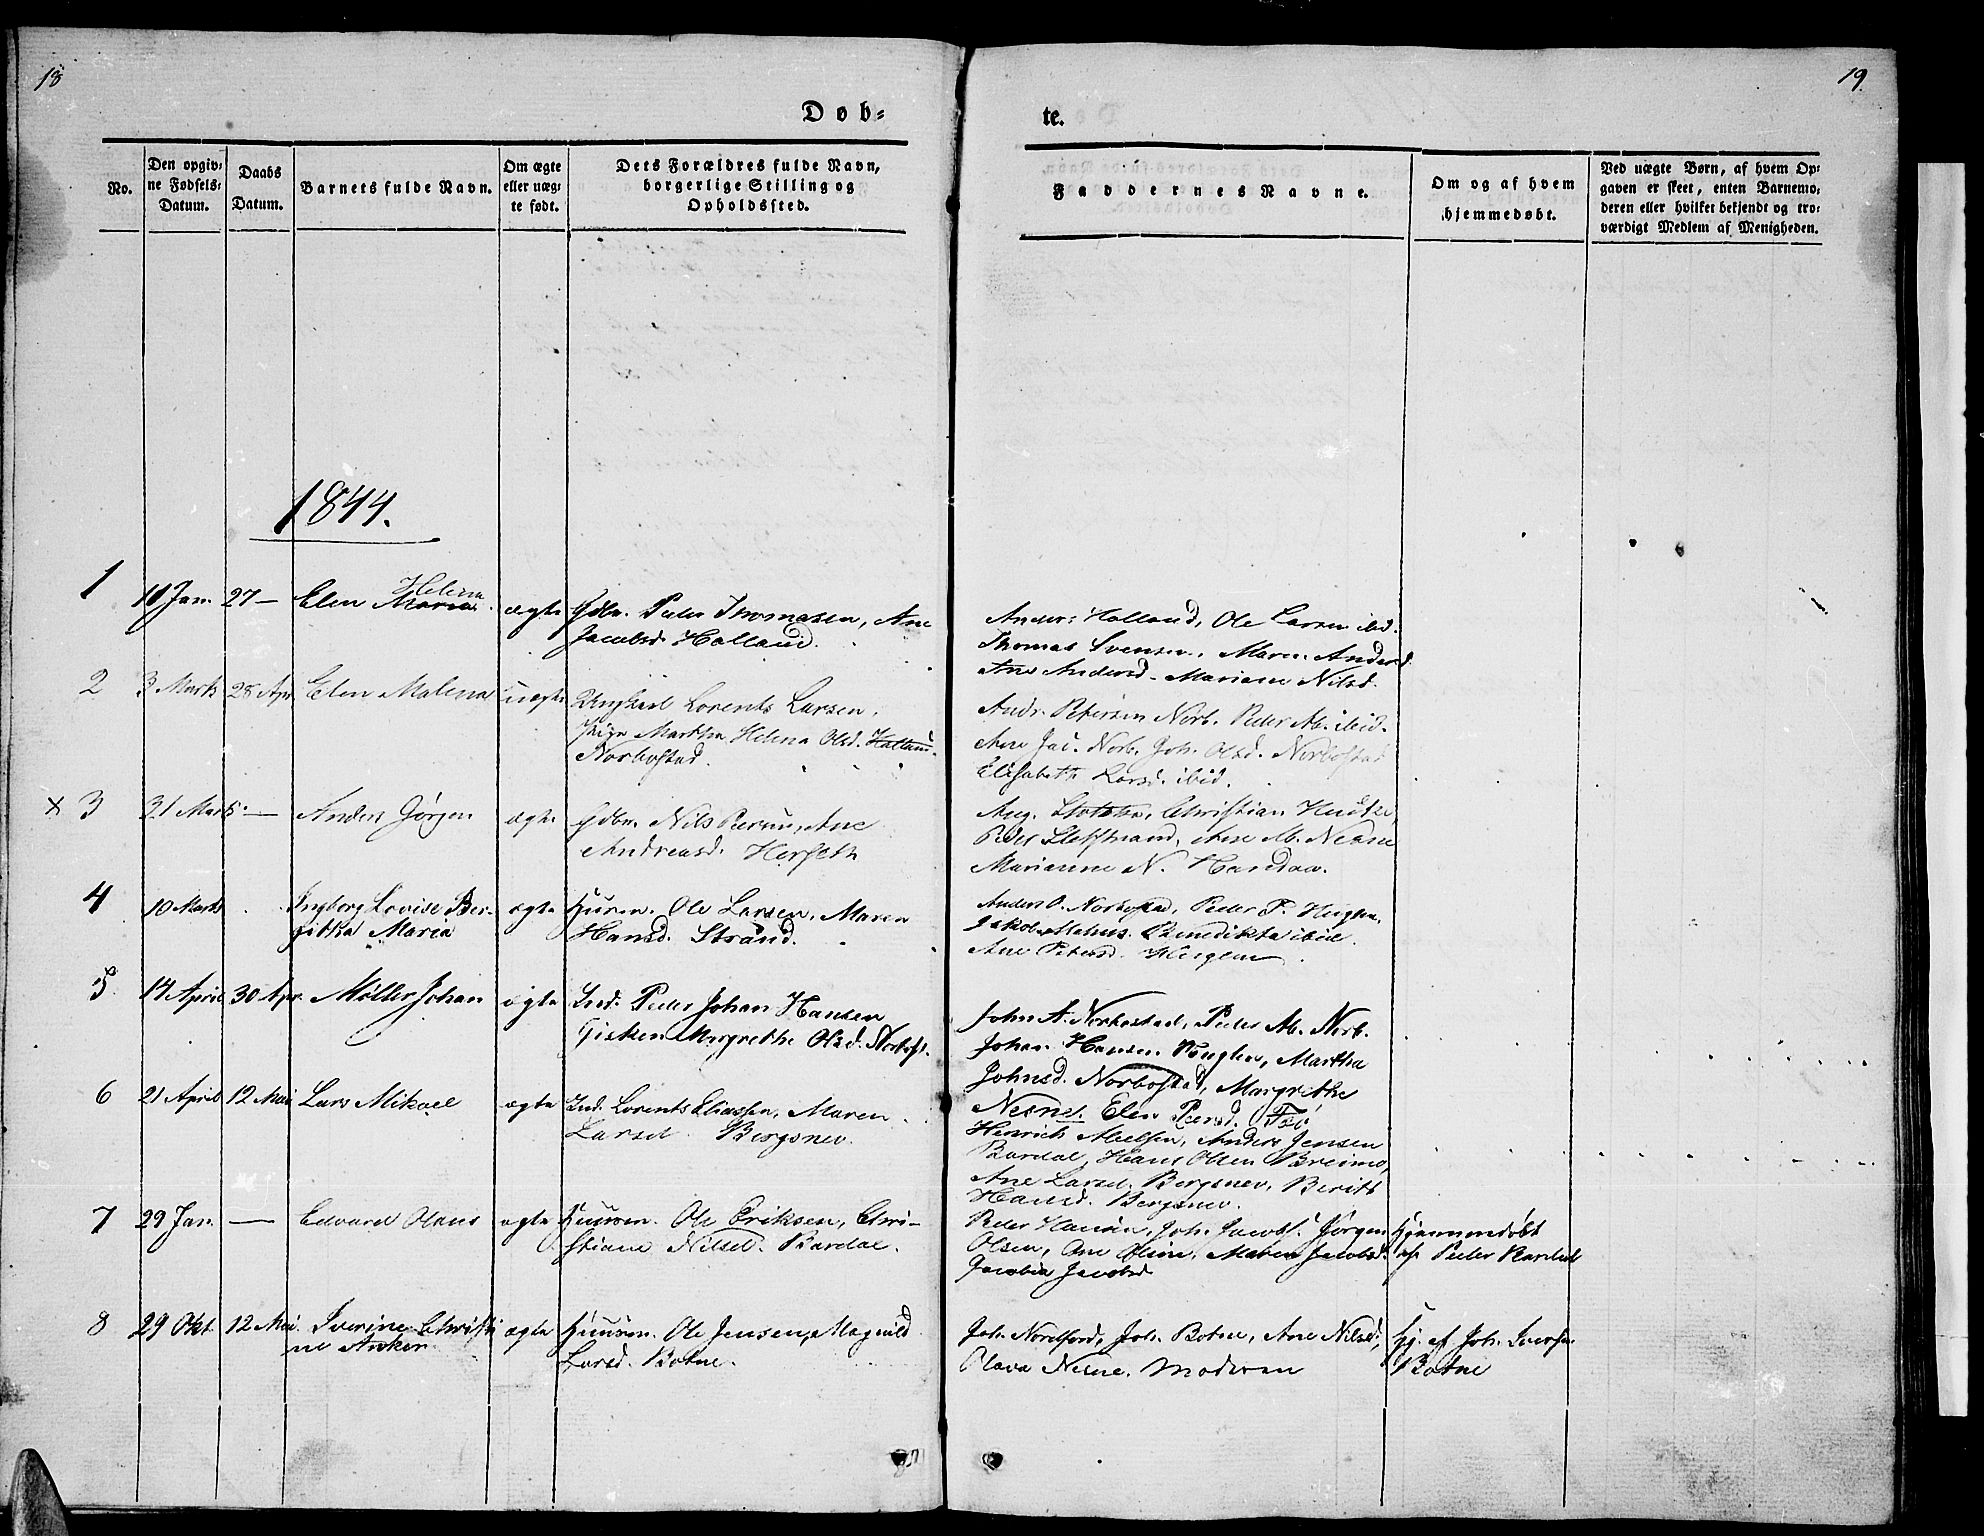 18
19
Døb=
te.
No.
Den opgiv=
ne Fødsels=
Datum.
Daabs
Datum.
Barnets fulde Navn.
Om ægte
eller uæg=
te født.
Dets Forældres fulde Navn,
borgerlige Stilling og
Opholdssted.
Faddernes Navne.
Om og af hvem
hjemmedøbt.
Ved uægte Børn, af hvem Op=
gaven er skeet, enten Barnemo=
deren eller hvilket bekjendt og tro=
værdigt Medlem af Menigheden.
1844.
1
11 Jan. 27 — Elen Maria Helena ægte Gdbr. Peder Thomasen, Ane
Jacobsd. Holland.
Anders Holland, Ole Larsen ibid.
Thomas Svensen, Maren Andersd.
Ane Andersd. Mariane Nilsd.
2 3 Marts 28 Apr. Elen Malena uægte Ungkarl Lorents Larsen,
Pige Martha Helena Olsd.
Norbostad.
Andr. Petersen Norb. Peder M. ibid.
Ane Jac. Norb. Joh. Olsd. Norbostad
Elisabeth Larsd. ibid.
x 3 31 Marts — Anders Jørgen ægte Gdbr. Nils Persen, Ane
Andreasd. Herseth
Christian
Peder Sletstrand, Ane M. Nesne
Marianne N. Handaa.
4 10 Marts Ingborg Lovise Ber-
githa Maria
ægte Huusm. Ole Larsen, Maren
Hansd. Strand.
Anders O. Norbostad, Peder P. Huglen.
Benedikta ibid.
Ane Petersd. Huglen
5 14 April 30 Apr. Møller Johan ægte Ind. Peder Johan Hansen
Gisken Margrethe Olsd. Norbost.
John A. Norbostad, Peder M. Norb.
Johan Hansen Huglen, Martha
Johnsd. Norbostad, Margrethe
Nesne. Elen Pedersd.
6 21 April 12 Mai Lars Mikael ægte Ind. Lorents Eliassen, Maren
Larsd. Bergsnev.
Henrich Anders Jensen
Bardal, Hans Olsen Breimo,
Ane Larsd. Bergsnev, Berith
Hansd. Bergsnev.
7 29 Jan. — Edvard Olaus ægte Huusm. Ole Eriksen, Chri-
stiane Nilsd. Bardal.
Peder Hansen, Joh. Jacobs. Jørgen
Olsen, Ane Olsen, Maren Jacobsd.
Jacobia Jacobsd
Hjemmedøbt
af Peder Bardal
8 29 Okt 12 Mai Iverine Christi
ne Anken
ægte Huusm. Ole Jensen, Magnild
Larsd. Botne.
Joh. Nordfjord, Joh. Botne, Ane Nilsd.,
Olava Nesne. Moderen
Hj. af Joh. Iversen
Botne